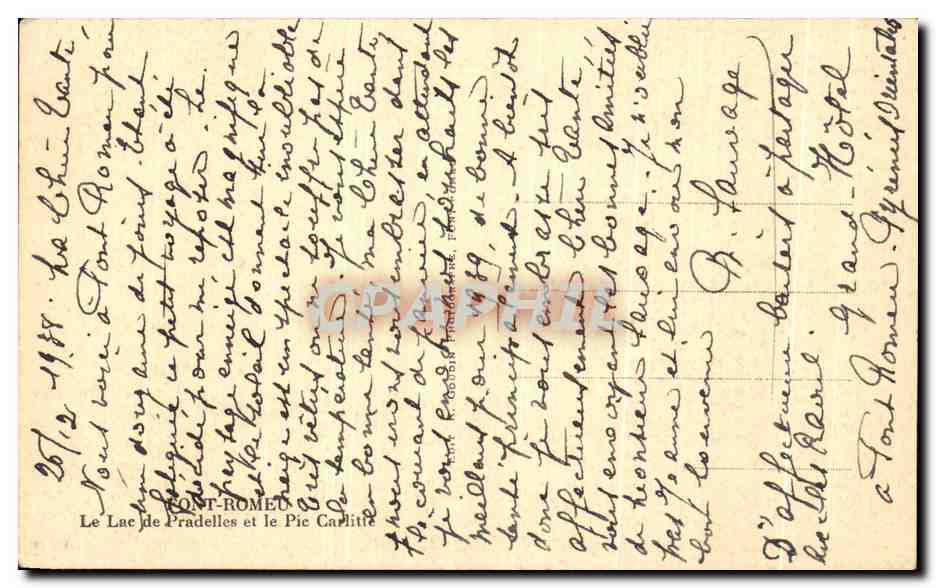 25/12 1938. Ma Chère Tante
Nous voici à Font Romeu pour
une dizaine de jours. Étant
fatigué ce petit voyage a été
décidé pour me reposer. Le
paysage enneigé est magnifique
et le soleil donnant sur la
neige est un spectacle inoubliable
très vêtus on ne souffre pas de
la température. Je vous espère
en bonne santé, ma Chère Tante
nous irons vous embrasser dans
le courant de Janvier en attendant
je vous envoie mes souhaits les
meilleurs pour 1939, de bonne
santé principalement. A bientôt
donc je vous embrasse fort
affectueusement Chère Tante
vous envoyant les bonnes amitiés
de Monsieur Sauvage. Je n'oublie
pas Jeanne et lui envoie mon
bon souvenir
R. Sauvage
D'affectueux baisers à partager
Raoul
Grand-Hôtel
à Font Romeu. Pyrénées Orientales
FONT-ROMEU
Le Lac de Pradelles et le Pic Carlitte
EDIT. R. GOUDIN PHOTOGRAPHE, FONT-ROMEU
CPAPHIL